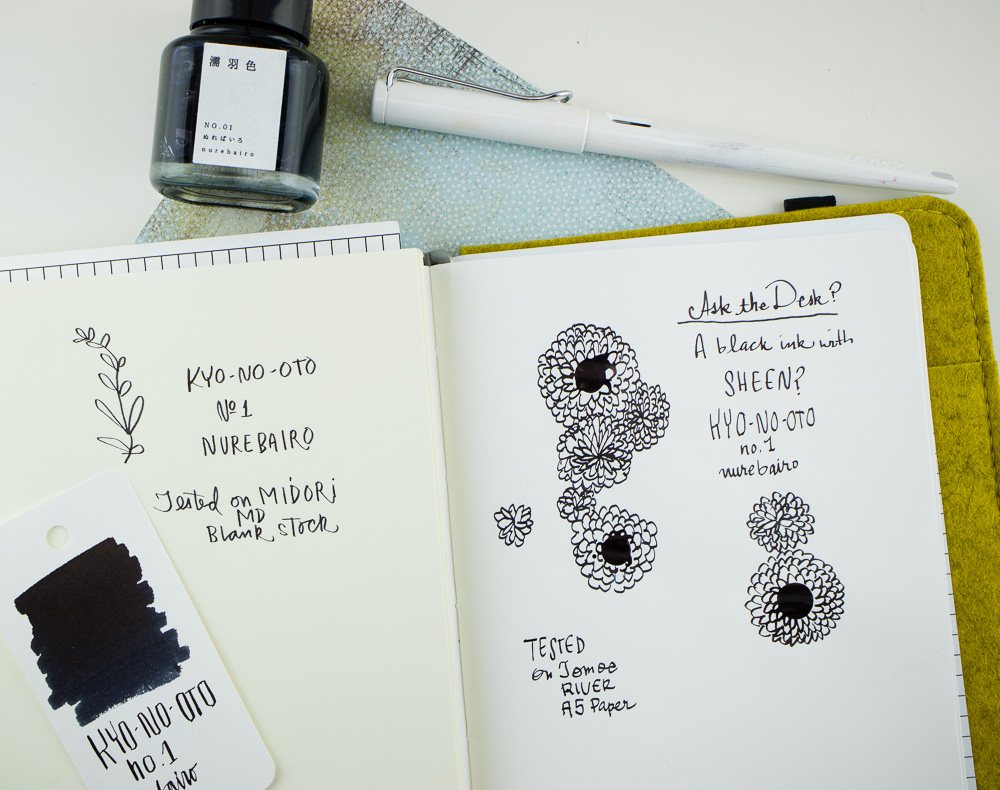 濡羽色
NO.01
ぬればいろ
nurebairo
KYO-NO-OTO
Nº 1
NUREBAIRO
Tested on MIDORI
MD
Blank stock
KYO-NO-OTO
no.1
Ask the Desk?
A black ink with
SHEEN?
KYO-NO-OTO
no.1
nurebairo
TESTED
on Tomoe
RIVER
A5 Paper